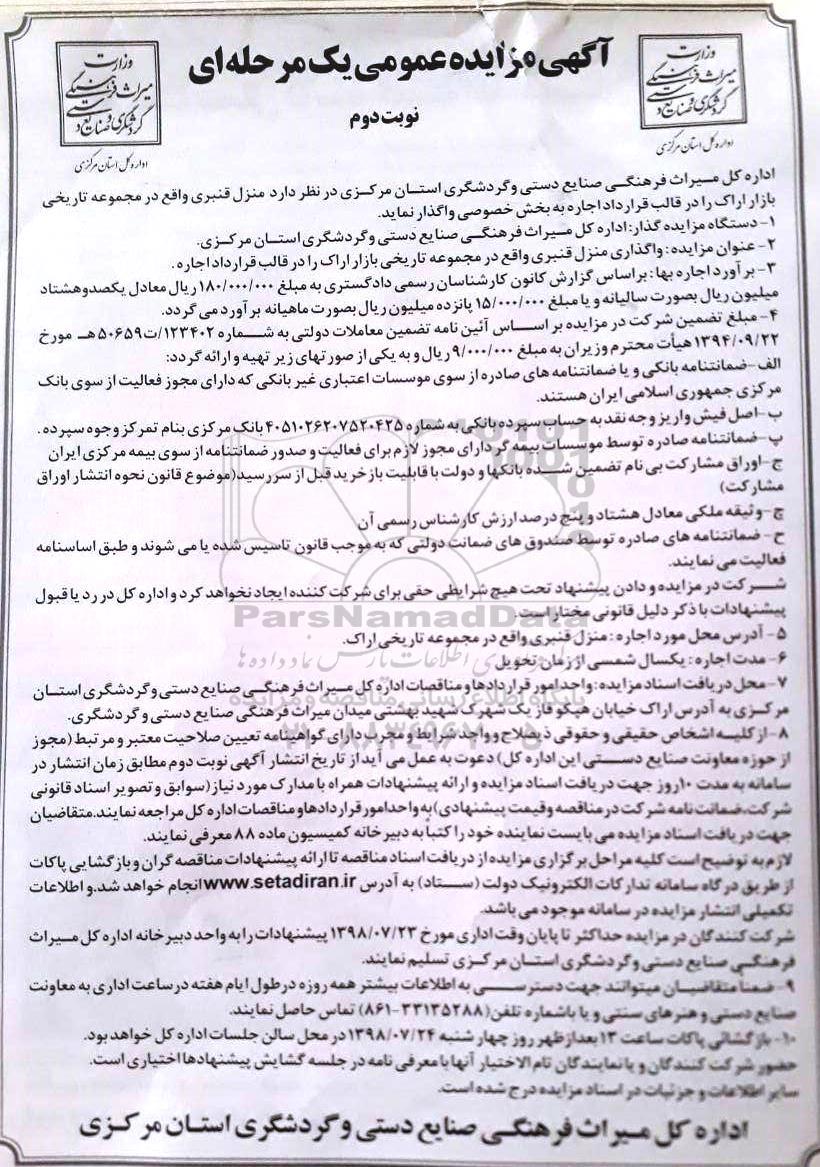 آگهی مزایده عمومی یک مرحله‌ای
نوبت دوم
وزارت میراث فرهنگی گردشگری و صنایع دستی
اداره کل استان مرکزی
وزارت میراث فرهنگی گردشگری و صنایع دستی
اداره کل استان مرکزی
اداره کل میراث فرهنگی صنایع دستی و گردشگری استان مرکزی در نظر دارد منزل قنبری واقع در مجموعه تاریخی
بازار اراک را در قالب قرارداد اجاره به بخش خصوصی واگذار نماید.
۱- دستگاه مزایده گذار: اداره کل میراث فرهنگی صنایع دستی و گردشگری استان مرکزی.
۲- عنوان مزایده: واگذاری منزل قنبری واقع در مجموعه تاریخی بازار اراک را در قالب قرارداد اجاره.
۳- برآورد اجاره بها: براساس گزارش کانون کارشناسان رسمی دادگستری به مبلغ ۱۸۰/۰۰۰/۰۰۰ ریال معادل یکصدوهشتاد
میلیون ریال بصورت سالیانه و یا مبلغ ۱۵/۰۰۰/۰۰۰ پانزده میلیون ریال بصورت ماهیانه برآورد می گردد.
۴- مبلغ تضمین شرکت در مزایده بر اساس آئین نامه تضمین معاملات دولتی به شماره ۱۲۳۴۰۲/ت۵۰۶۵۹هـ مورخ
۱۳۹۴/۰۹/۲۲ هیأت محترم وزیران به مبلغ ۹/۰۰۰/۰۰۰ ریال و به یکی از صورتهای زیر تهیه و ارائه گردد:
الف-ضمانتنامه بانکی و یا ضمانتنامه های صادره از سوی موسسات اعتباری غیر بانکی که دارای مجوز فعالیت از سوی بانک
مرکزی جمهوری اسلامی ایران هستند.
ب-اصل فیش واریز وجه نقد به حساب سپرده بانکی به شماره ۴۰۵۱۰۲۶۲۰۷۵۲۰۴۲۵ بانک مرکزی بنام تمرکز وجوه سپرده.
پ-ضمانتنامه صادره توسط موسسات بیمه گر دارای مجوز لازم برای فعالیت و صدور ضمانتنامه از سوی بیمه مرکزی ایران
ج-اوراق مشارکت بی نام تضمین شده بانکها و دولت با قابلیت بازخرید قبل از سررسید(موضوع قانون نحوه انتشار اوراق
مشارکت)
چ-وثیقه ملکی معادل هشتاد و پنج درصد ارزش کارشناس رسمی آن
ح- ضمانتنامه های صادره توسط صندوق های ضمانت دولتی که به موجب قانون تاسیس شده یا می شوند و طبق اساسنامه
فعالیت می نمایند.
شرکت در مزایده و دادن پیشنهاد تحت هیچ شرایطی حقی برای شرکت کننده ایجاد نخواهد کرد و اداره کل در رد یا قبول
پیشنهادات با ذکر دلیل قانونی مختار است.
۵- آدرس محل مورد اجاره: منزل قنبری واقع در مجموعه تاریخی اراک.
۶- مدت اجاره: یکسال شمسی از زمان تحویل
۷- محل دریافت اسناد مزایده: واحد امور قراردادها و مناقصات اداره کل میراث فرهنگی صنایع دستی و گردشگری استان
مرکزی به آدرس اراک خیابان هپکو فاز یک شهرک شهید بهشتی میدان میراث فرهنگی صنایع دستی و گردشگری.
۸- از کلیه اشخاص حقیقی و حقوقی ذیصلاح و واجد شرایط و مجرب دارای گواهینامه تعیین صلاحیت معتبر و مرتبط (مجوز
از حوزه معاونت صنایع دستی این اداره کل) دعوت به عمل می آید از تاریخ انتشار آگهی نوبت دوم مطابق زمان انتشار در
سامانه به مدت ۱۰ روز جهت دریافت اسناد مزایده و ارائه پیشنهادات همراه با مدارک مورد نیاز (سوابق و تصویر اسناد قانونی
شرکت، ضمانت نامه شرکت در مناقصه و قیمت پیشنهادی) به واحد امور قراردادها و مناقصات اداره کل مراجعه نمایند. متقاضیان
جهت دریافت اسناد مزایده می بایست نماینده خود را کتباً به دبیرخانه کمیسیون ماده ۸۸ معرفی نمایند.
لازم به توضیح است کلیه مراحل برگزاری مزایده از دریافت اسناد مناقصه تا ارائه پیشنهادات مناقصه گران و بازگشایی پاکات
از طریق درگاه سامانه تدارکات الکترونیک دولت (ستاد) به آدرس www.setadiran.ir انجام خواهد شد. و اطلاعات
تکمیلی انتشار مزایده در سامانه موجود می باشد.
شرکت کنندگان در مزایده حداکثر تا پایان وقت اداری مورخ ۱۳۹۸/۰۷/۲۳ پیشنهادات را به واحد دبیرخانه اداره کل میراث
فرهنگی صنایع دستی و گردشگری استان مرکزی تسلیم نمایند.
۹- ضمنا متقاضیان میتوانند جهت دسترسی به اطلاعات بیشتر همه روزه در طول ایام هفته در ساعت اداری به معاونت
صنایع دستی و هنرهای سنتی و یا باشماره تلفن (۳۳۱۳۵۲۸۸-۸۶۱) تماس حاصل نمایند.
۱۰- بازگشائی پاکات ساعت ۱۳ بعد از ظهر روز چهار شنبه ۱۳۹۸/۰۷/۲۴ در محل سالن جلسات اداره کل خواهد بود.
حضور شرکت کنندگان و یا نمایندگان تام الاختیار آنها با معرفی نامه در جلسه گشایش پیشنهادها اختیاری است.
سایر اطلاعات و جزئیات در اسناد مزایده درج شده است.
اداره کل میراث فرهنگی صنایع دستی و گردشگری استان مرکزی
ParsNamadData
پایگاه اطلاع رسانی مناقصه و مزایده